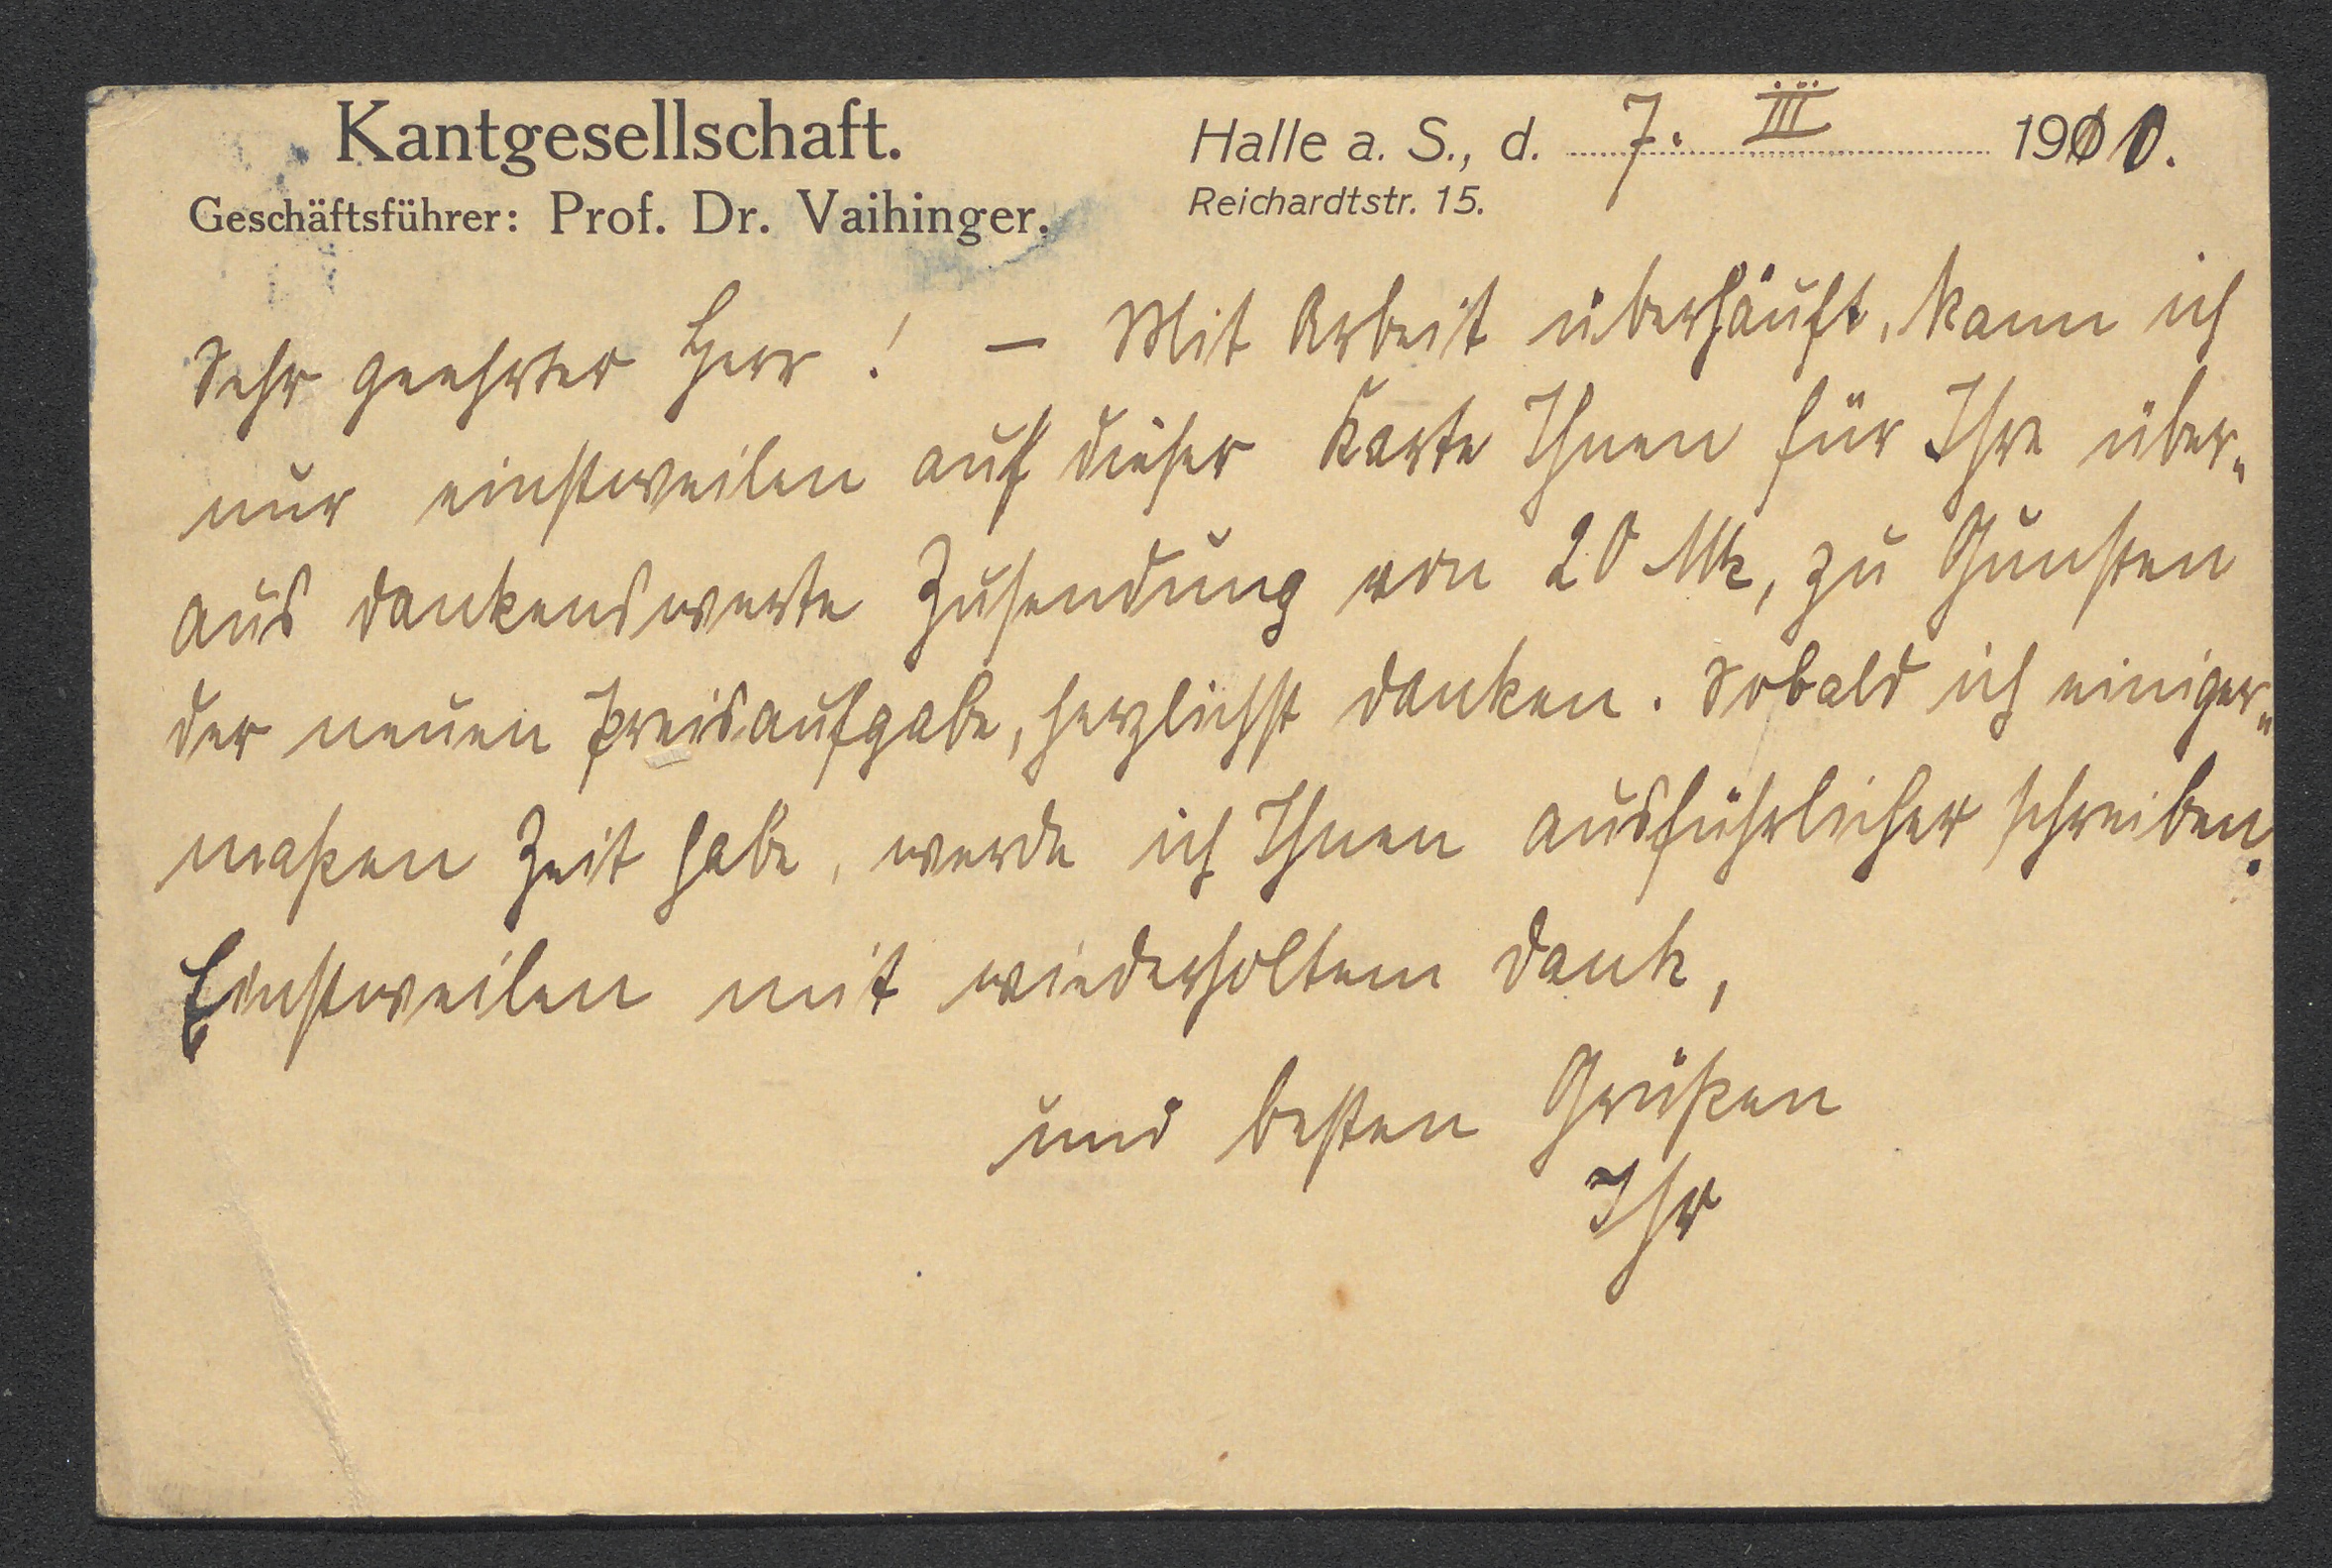 Kantgesellschaft.
Geschäftsführer: Prof. Dr. Vaihinger.
Halle a. S., d. 7. III 1910.
Reichardtstr. 15.
Sehr geehrter Herr! — Mit Arbeit überhäuft, kann ich
nur einstweilen auf dieser Karte Ihnen für Ihre über-
aus dankenswerte Zusendung von 20 Mk, zu Gunsten
der neuen Preisaufgabe, herzlichst danken. Sobald ich einiger-
maßen Zeit habe, werde ich Ihnen ausführlicher schreiben.
Einstweilen mit wiederholtem Dank,
und besten Grüßen
Ihr